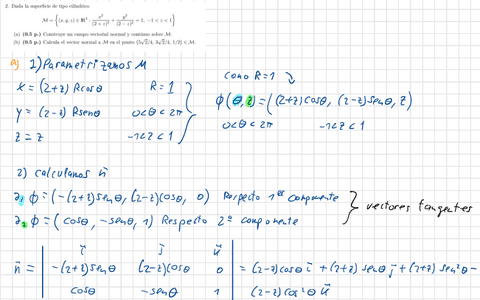 2. Dada la superficie de tipo cilíndrico
M = { (x, y, z) ∈ ℝ³ : x²/(2 + z)² + y²/(2 − z)² = 1, −1 < z < 1 }
(a) (0.5 p.) Construye un campo vectorial normal y continuo sobre M.
(b) (0.5 p.) Calcula el vector normal a M en el punto (5√2/4, 3√2/4, 1/2) ∈ M.
a) 1) Parametrizamos M
x = (2+z) R cosθ R = 1
y = (2-z) R senθ 0<θ<2π
z = z -1<z<1
como R=1
φ(θ,z) = ((2+z)cosθ, (2-z)senθ, z)
0<θ<2π -1<z<1
2) calculamos n⃗
∂₁ φ = (-(2+z)senθ, (2-z)cosθ, 0) Respecto 1ª componente
∂₂ φ = (cosθ, -senθ, 1) Respecto 2ª componente
} vectores tangentes
n⃗ = | i⃗ j⃗ k⃗ |
| -(2+z)senθ (2-z)cosθ 0 | = (2-z)cosθ i⃗ + (2+z) senθ j⃗ + (2+z) sen²θ -
| cosθ -senθ 1 | (2-z) cos²θ k⃗